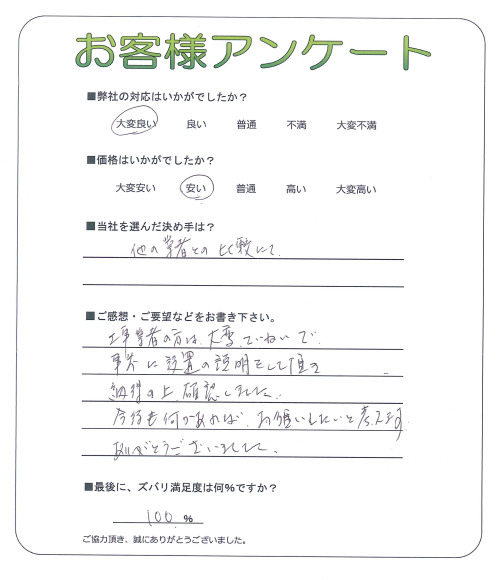 お客様アンケート
■弊社の対応はいかがでしたか？
大変良い 良い 普通 不満 大変不満
■価格はいかがでしたか？
大変安い 安い 普通 高い 大変高い
■当社を選んだ決め手は？
他の業者との比較にて
■ご感想・ご要望などをお書き下さい。
工事業者の方は、大変ていねいで
事前に設置の説明をして頂き
納得の上確認しました。
今後も何かあれば、お願いしたいと考えます
ありがとうございました。
■最後に、ズバリ満足度は何％ですか？
100 ％
ご協力頂き、誠にありがとうございました。